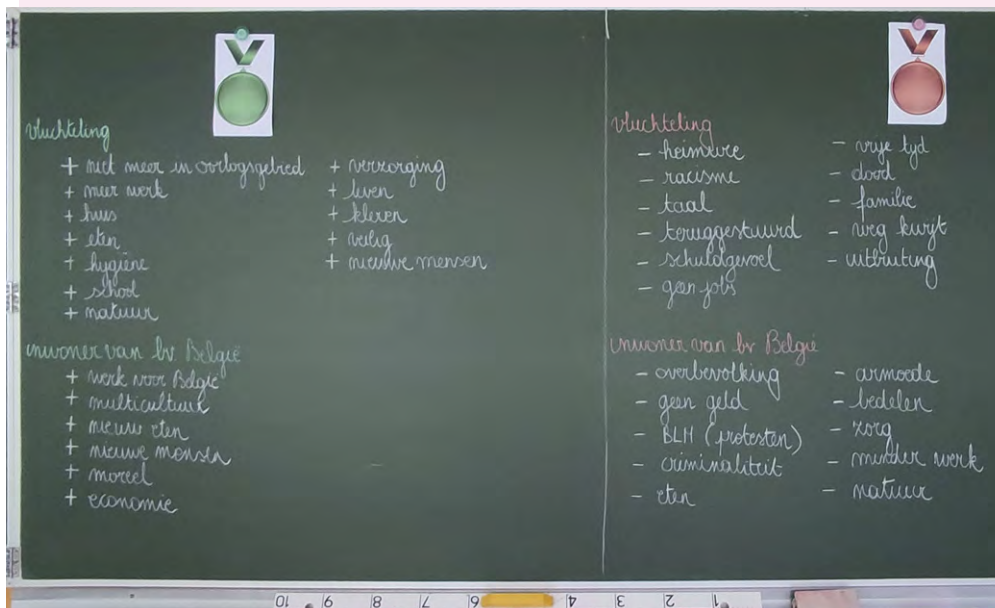 vluchteling
+ niet meer in oorlogsgebied
+ meer werk
+ huis
+ eten
+ hygiëne
+ school
+ natuur
+ verzorging
+ leven
+ kleren
+ veilig
+ nieuwe mensen
inwoner van bv België
+ werk voor België
+ multicultuur
+ nieuw eten
+ nieuwe mensen
+ moreel
+ economie
vluchteling
- heimwee
- racisme
- taal
- teruggestuurd
- schuldgevoel
- geen jobs
- vrije tijd
- dood
- familie
- weg kwijt
- uitbuiting
inwoner van bv België
- overbevolking
- geen geld
- BLM (protesten)
- criminaliteit
- eten
- armoede
- bedelen
- zorg
- minder werk
- natuur
10 9 8 7 6 4 3 2 1